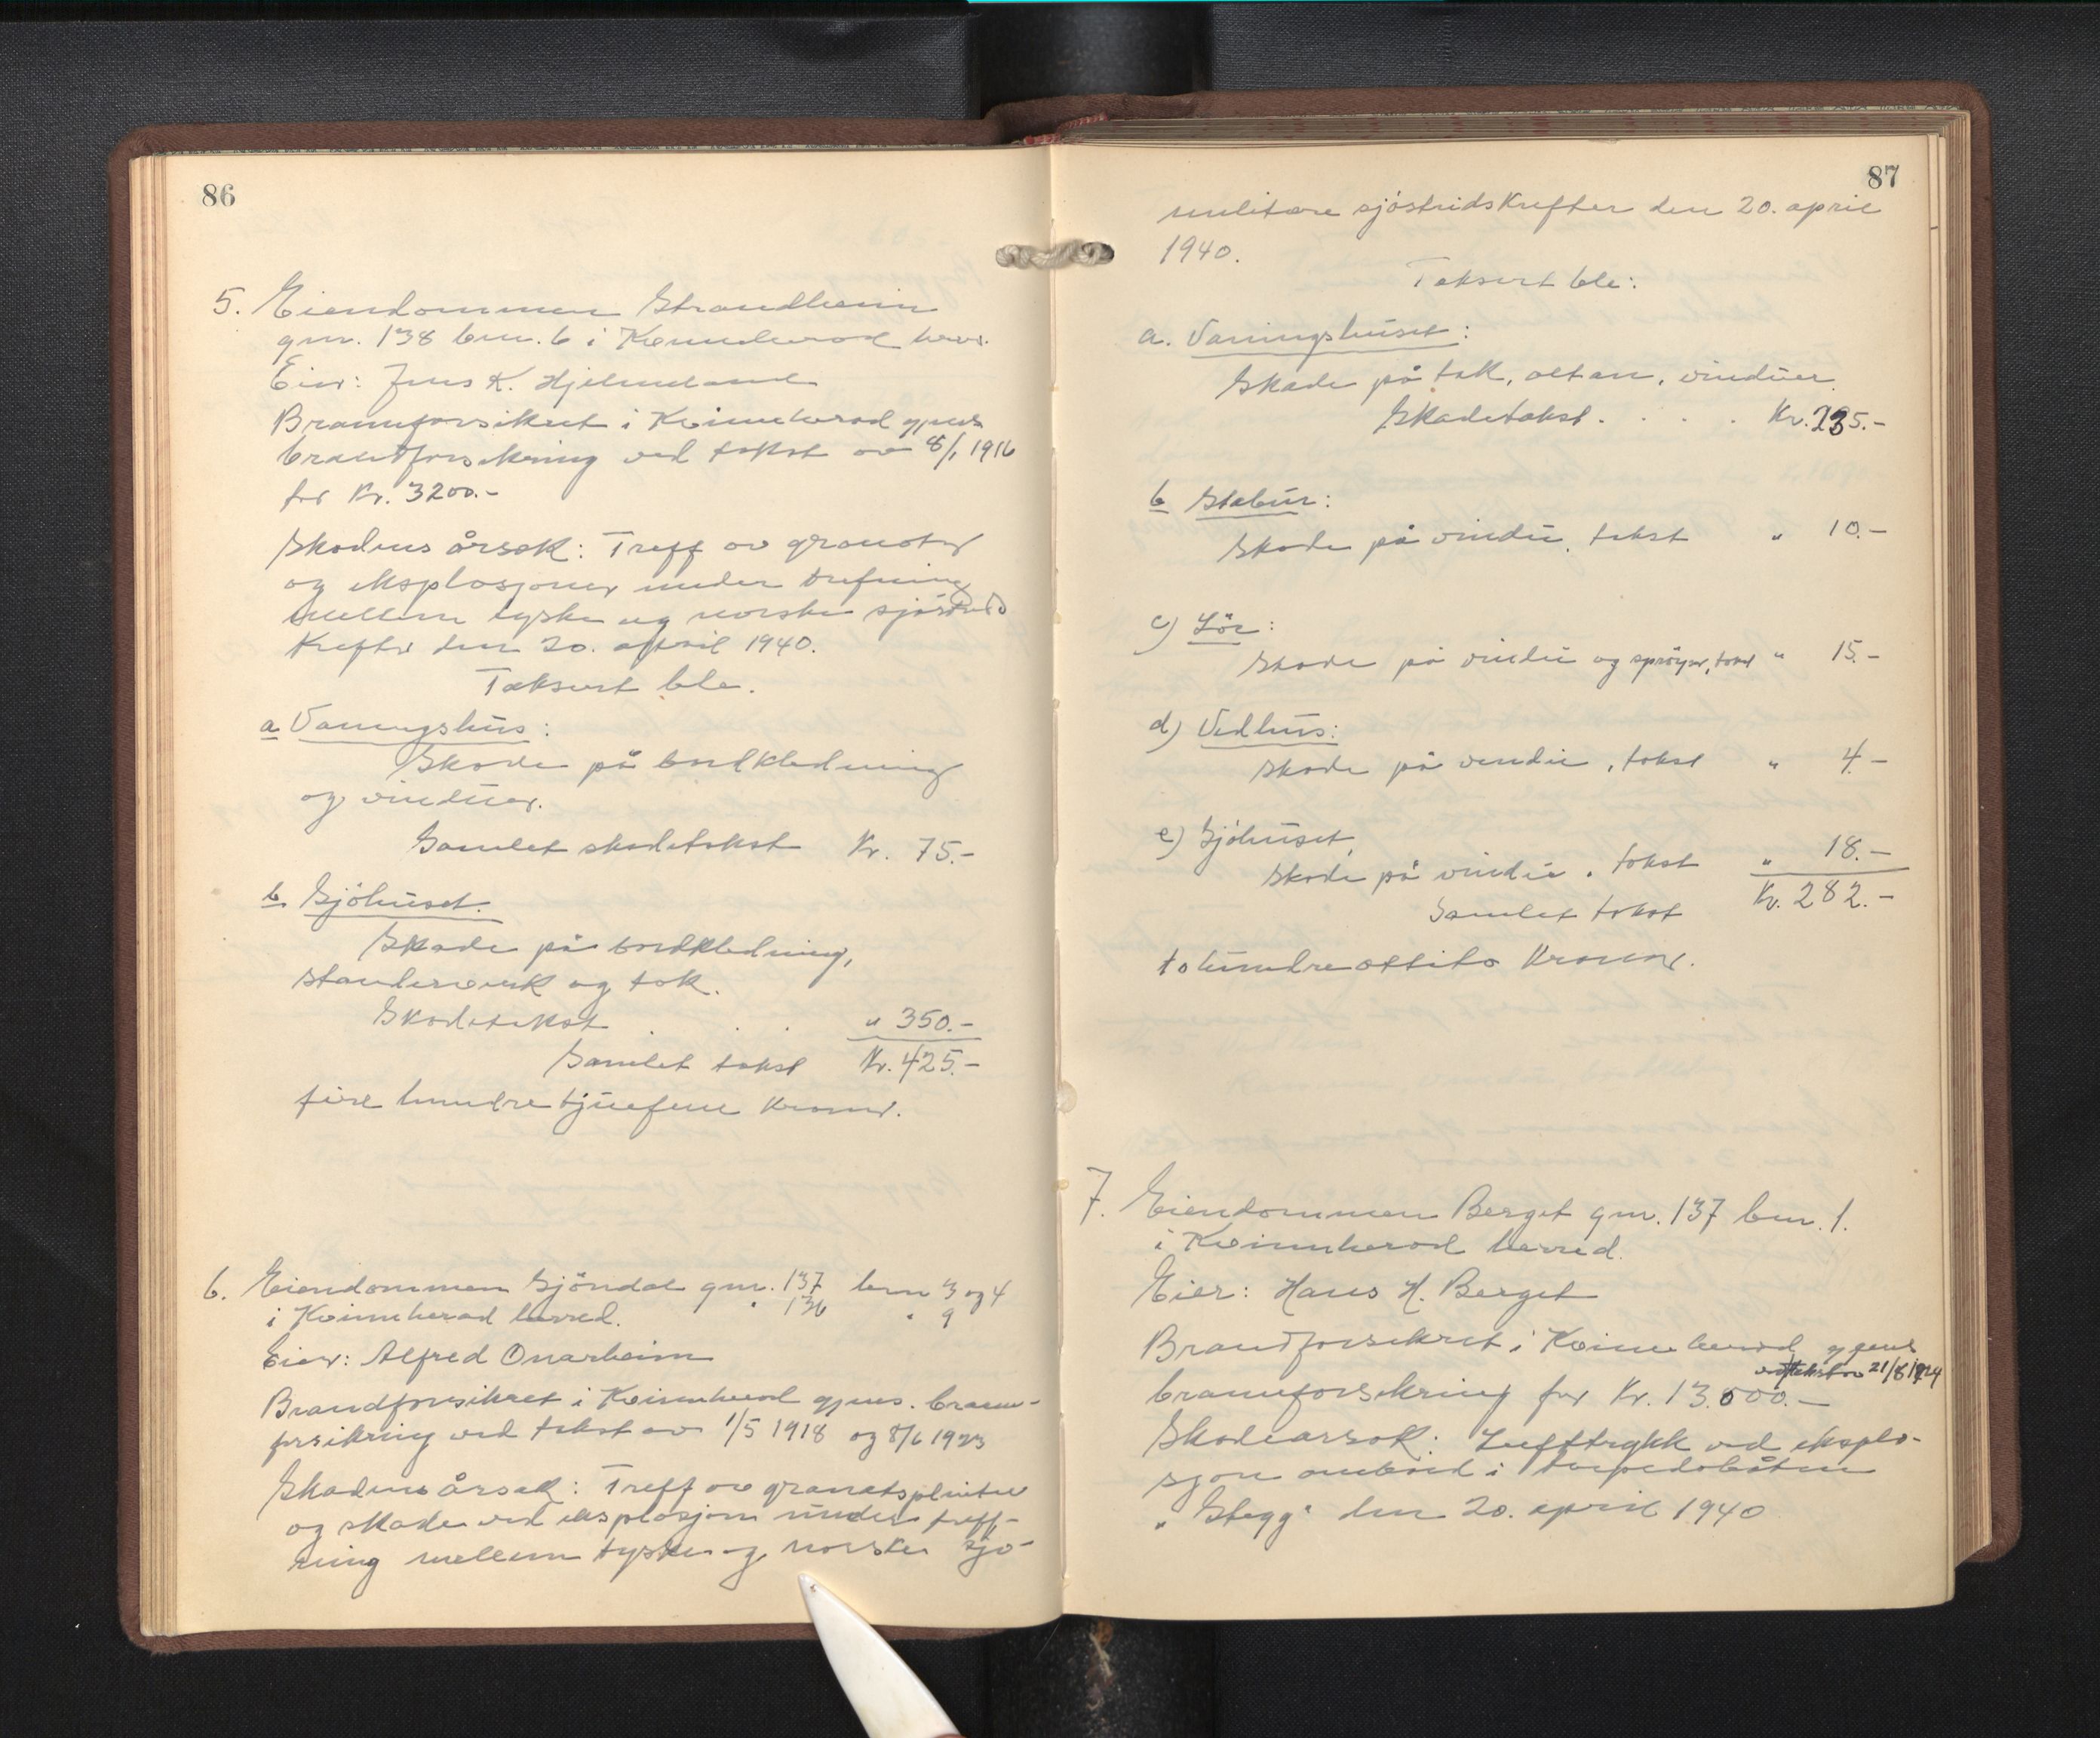 86
5. Eiendommen Strandheim
gnr. 138 bnr. 6 i Kvinnherad herr.
Eier: Jens K. Hjelmeland
Brannforsikret i Kvinnherad gjens
brandforsikring ved takst av 8/1 1916
for Kr. 3200.-
Skadens årsak: Treff av granater
og eksplosjoner under trefning
mellem tyske og norske sjöstrids
krefter den 20. april 1940.
Taksert ble.
a Vaningshus:
Skade på bordkledning
og vinduer.
Samlet skadetakst Kr. 75.-
b. Sjöhuset.
Skade på bordkledning,
stenderverk og tak.
Skadetakst . . . " 350.-
Samlet takst Kr. 425.-
fire hundre tjuefem kroner.
6. Eiendommen Sjöndal gnr. 137 bnr 3 og 4
i Kvinnherad herred. " 136 " 9
Eier: Alfred Onarheim
Brandforsikret i Kvinnherad gjens. brann-
forsikring ved takst av 1/5 1918 og 8/6 1923
Skadens årsak: Treff av granatsplinter
og skade ved eksplosjon under treff-
ning mellem tyske og norske sjö-
87
militære sjöstridskrefter den 20. april
1940.
Taksert ble:
a. Vaningshuset:
Skade på tak, altan, vinduer.
Skadetakst. . . . . Kr. 235.-
b Stabur:
Skade på vindu, takst " 10.-
c) Löe:
Skade på vindu og spröyser, takst " 15.-
d) Vedhus:
Skade på vindu, takst " 4.-
e) Sjöhuset,
Skade på vindu. takst " 18.-
Samlet takst Kr. 282.-
tohundreottito kroner.
7. Eiendommen Berget gnr. 137 bnr. 1.
i Kvinnherad herred.
Eier: Hans H. Berget
Brandforsikret i Kvinnherad gjens
ved takst av 21/8 1924
brannforsikring for Kr. 13.000.-
Skadearsak: Lufttrykk ved eksplo-
sjon ombord i torpedobåten
"Stegg" den 20. april 1940